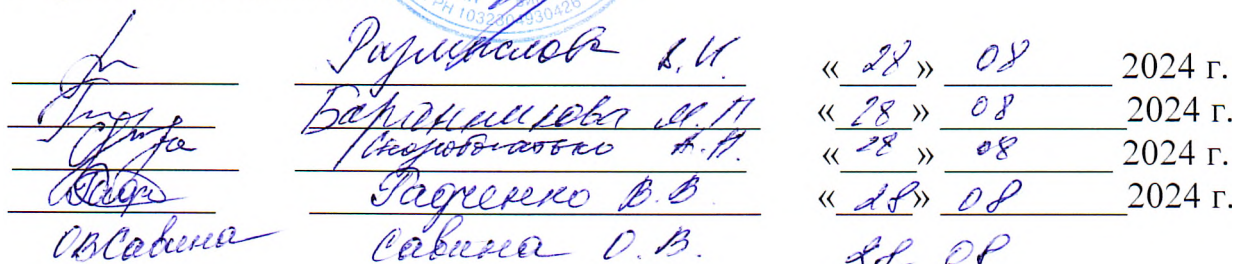 РН 1032304930426
Размыслов А.И. « 28 » 08 2024 г.
Баранникова М.П « 28 » 08 2024 г.
А.П. « 28 » 08 2024 г.
Радченко В.В « 28 » 08 2024 г.
ОВСавина Савина О.В. 28. 08